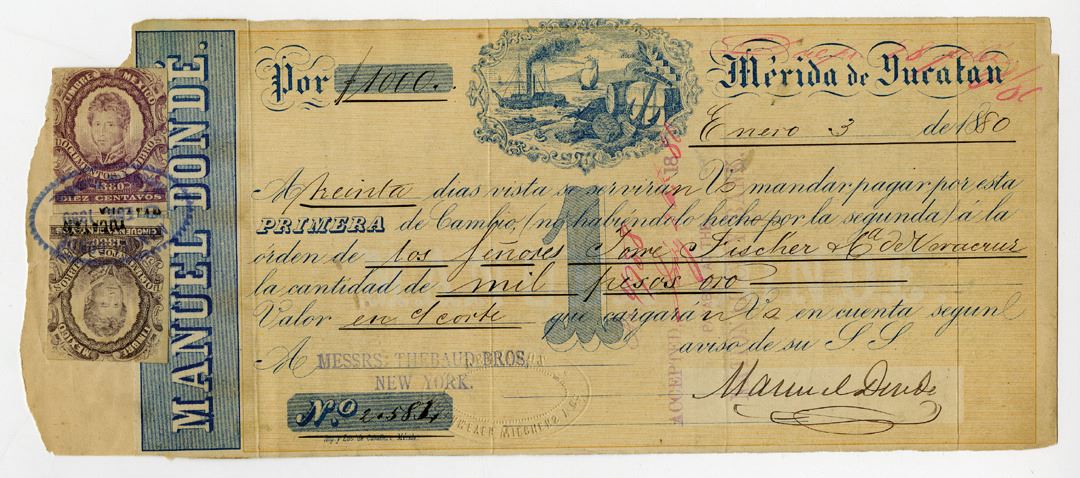 MANUEL DONDÉ.
TIMBRE MEXICO
DOCUMENTOS Y LIBROS
1880
DIEZ CENTAVOS
CINCUENTA CENTAVOS
1880
DOCUMENTOS Y LIBROS
TIMBRE MEXICO
Por $1000.
Mérida de Yucatan
Enero 3 de 1880
A treinta dias vista se servirán Vs mandar pagar por esta
PRIMERA de Cambio, (no habiéndolo hecho por la segunda) á la
órden de los Señores Fischer & Ca de Veracruz
la cantidad de mil pesos oro
Valor en que cargarán Vs en cuenta segun
aviso de su S S
A MESSRS. THEBAUD BROS.
NEW YORK.
Manuel Dondé
No 2.581
1
ACCEPTED